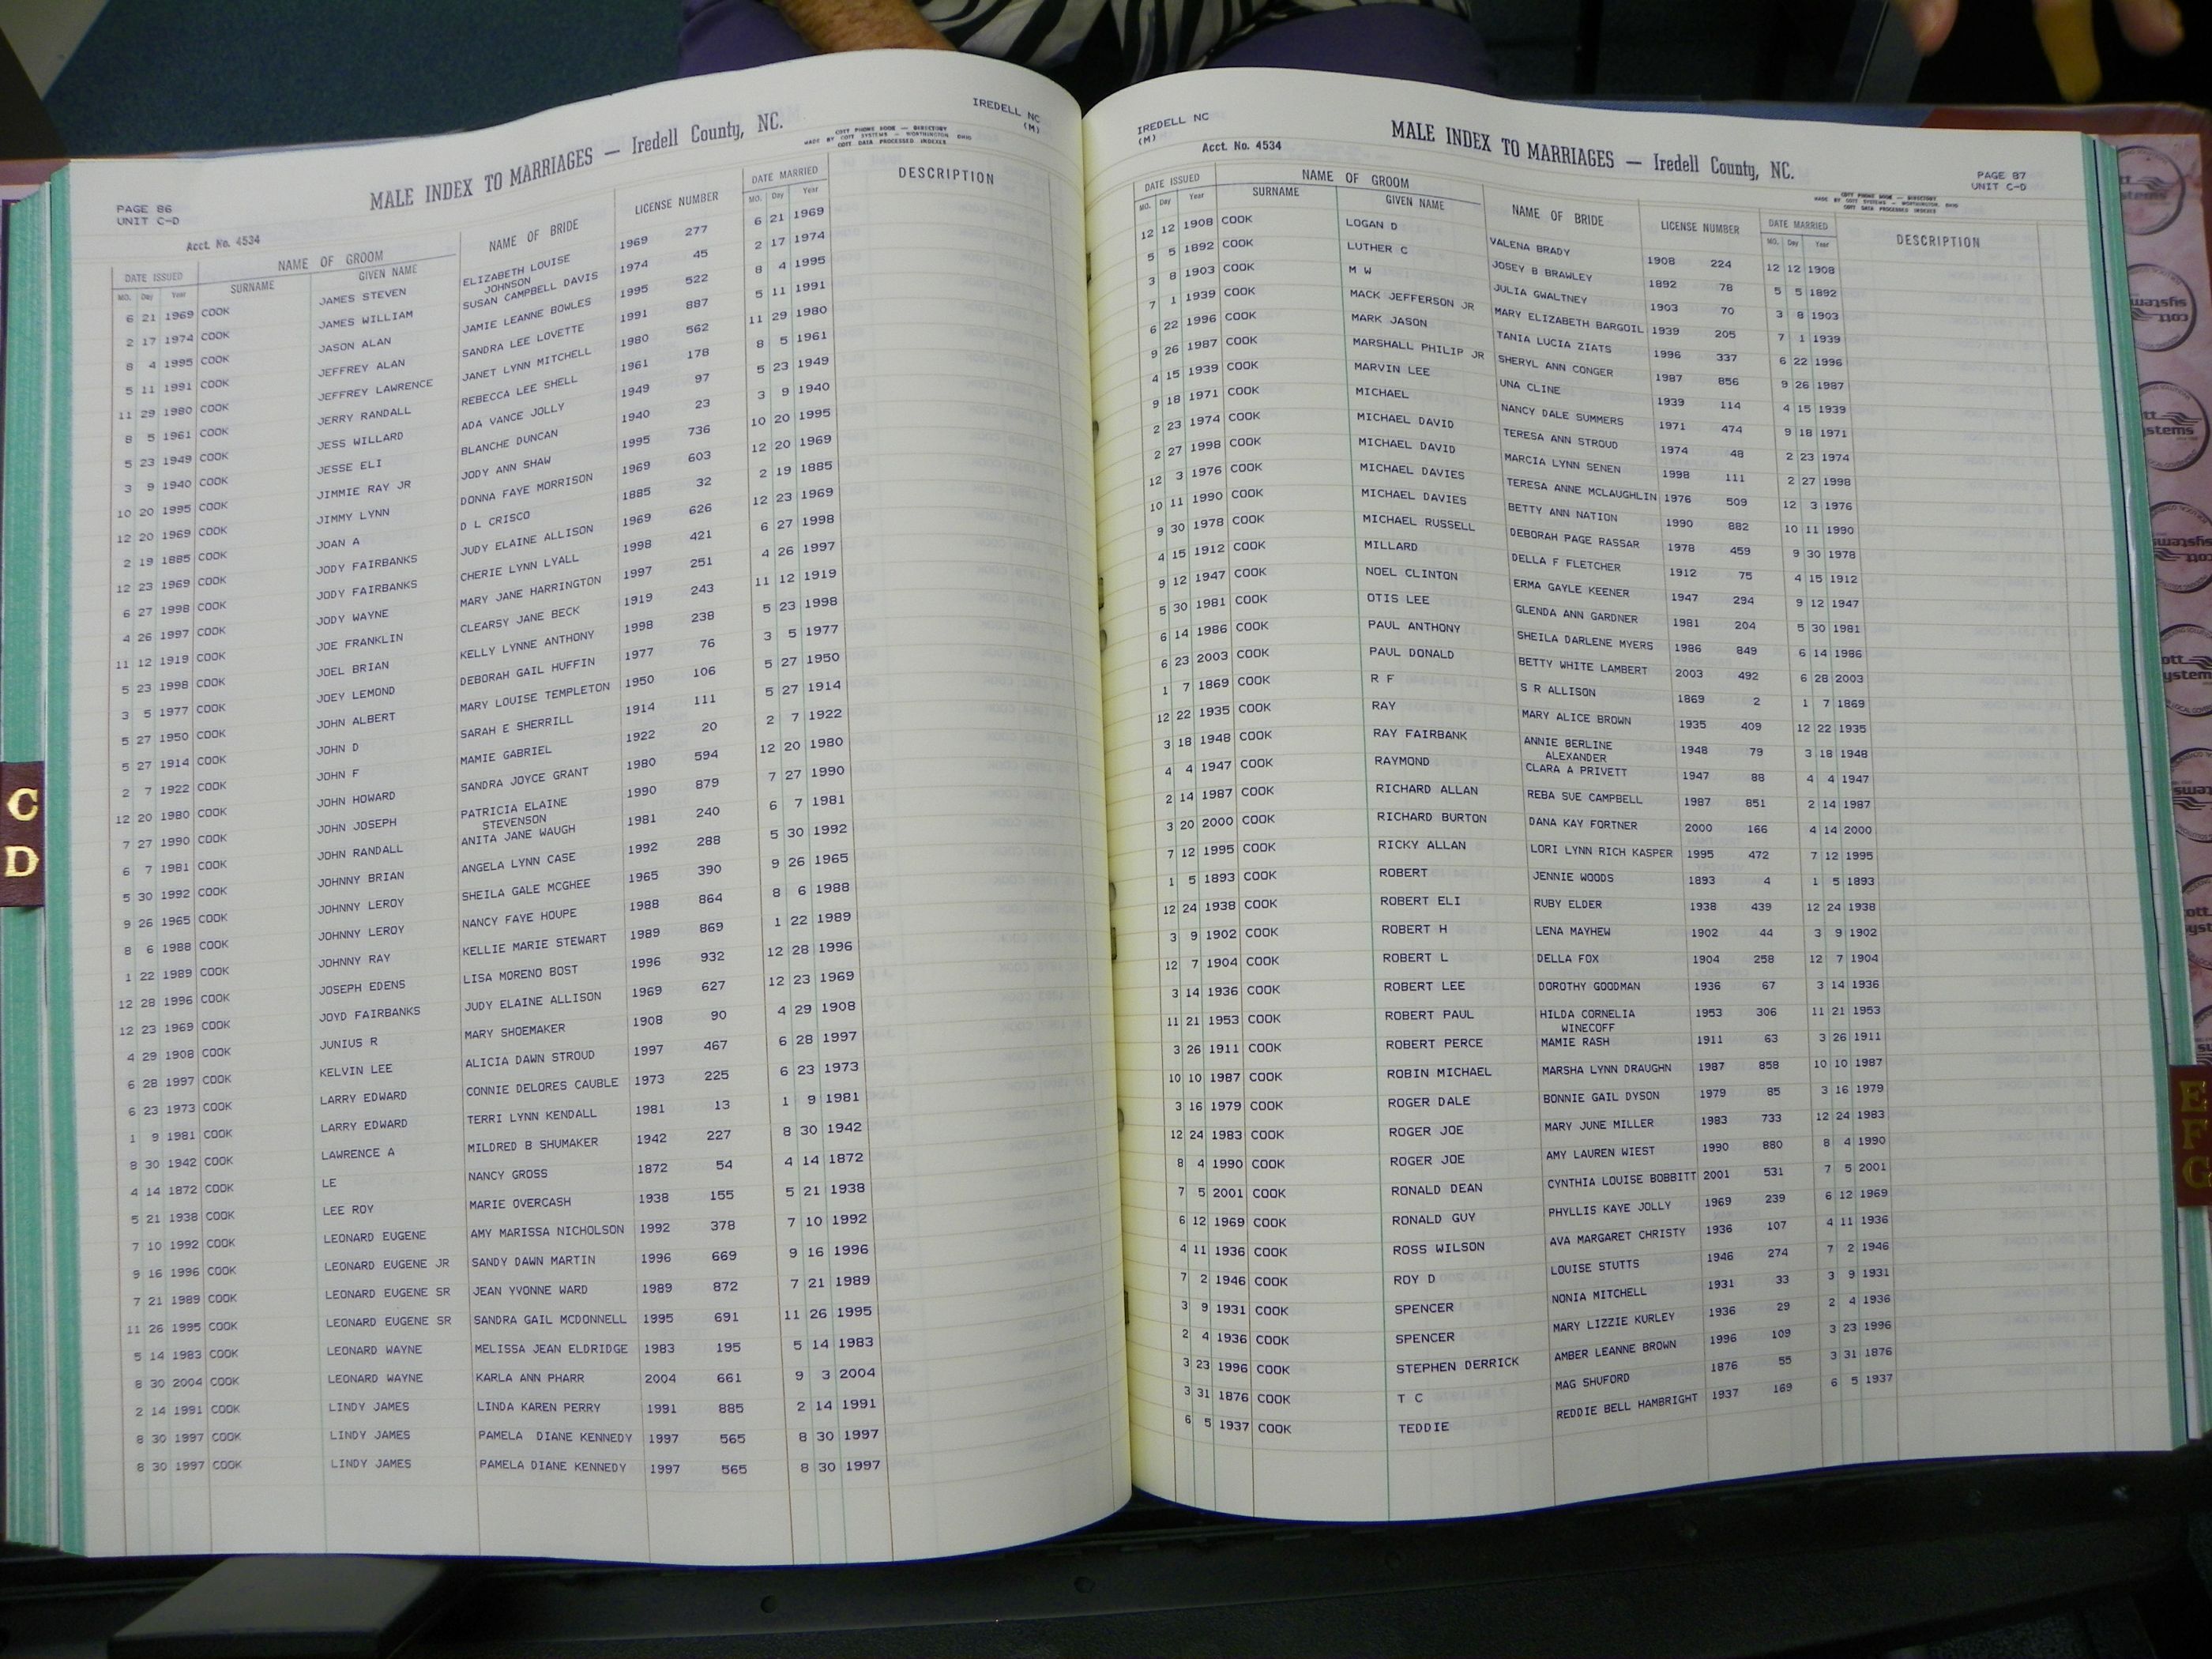 PAGE 86
UNIT C-D
Acct. No. 4534
MALE INDEX TO MARRIAGES — Iredell County, NC.
COTT PHONE BOOK — DIRECTORY
MADE BY COTT SYSTEMS — WORTHINGTON, OHIO
COTT DATA PROCESSED INDEXES
IREDELL NC
(M)
DATE ISSUED NAME OF GROOM NAME OF BRIDE LICENSE NUMBER DATE MARRIED DESCRIPTION
MO. Day Year SURNAME GIVEN NAME MO. Day Year
6 21 1969 COOK JAMES STEVEN ELIZABETH LOUISE 1969 277 6 21 1969
JOHNSON
2 17 1974 COOK JAMES WILLIAM SUSAN CAMPBELL DAVIS 1974 45 2 17 1974
8 4 1995 COOK JASON ALAN JAMIE LEANNE BOWLES 1995 522 8 4 1995
5 11 1991 COOK JEFFREY ALAN SANDRA LEE LOVETTE 1991 887 5 11 1991
11 29 1980 COOK JEFFREY LAWRENCE JANET LYNN MITCHELL 1980 562 11 29 1980
8 5 1961 COOK JERRY RANDALL REBECCA LEE SHELL 1961 178 8 5 1961
5 23 1949 COOK JESS WILLARD ADA VANCE JOLLY 1949 97 5 23 1949
3 9 1940 COOK JESSE ELI BLANCHE DUNCAN 1940 23 3 9 1940
10 20 1995 COOK JIMMIE RAY JR JODY ANN SHAW 1995 736 10 20 1995
12 20 1969 COOK JIMMY LYNN DONNA FAYE MORRISON 1969 603 12 20 1969
2 19 1885 COOK JOAN A D L CRISCO 1885 32 2 19 1885
12 23 1969 COOK JODY FAIRBANKS JUDY ELAINE ALLISON 1969 626 12 23 1969
6 27 1998 COOK JODY FAIRBANKS CHERIE LYNN LYALL 1998 421 6 27 1998
4 26 1997 COOK JODY WAYNE MARY JANE HARRINGTON 1997 251 4 26 1997
11 12 1919 COOK JOE FRANKLIN CLEARSY JANE BECK 1919 243 11 12 1919
5 23 1998 COOK JOEL BRIAN KELLY LYNNE ANTHONY 1998 238 5 23 1998
3 5 1977 COOK JOEY LEMOND DEBORAH GAIL HUFFIN 1977 76 3 5 1977
5 27 1950 COOK JOHN ALBERT MARY LOUISE TEMPLETON 1950 106 5 27 1950
5 27 1914 COOK JOHN D SARAH E SHERRILL 1914 111 5 27 1914
2 7 1922 COOK JOHN F MAMIE GABRIEL 1922 20 2 7 1922
12 20 1980 COOK JOHN HOWARD SANDRA JOYCE GRANT 1980 594 12 20 1980
7 27 1990 COOK JOHN JOSEPH PATRICIA ELAINE 1990 879 7 27 1990
STEVENSON
6 7 1981 COOK JOHN RANDALL ANITA JANE WAUGH 1981 240 6 7 1981
5 30 1992 COOK JOHNNY BRIAN ANGELA LYNN CASE 1992 288 5 30 1992
9 26 1965 COOK JOHNNY LEROY SHEILA GALE MCGHEE 1965 390 9 26 1965
8 6 1988 COOK JOHNNY LEROY NANCY FAYE HOUPE 1988 864 8 6 1988
1 22 1989 COOK JOHNNY RAY KELLIE MARIE STEWART 1989 869 1 22 1989
12 28 1996 COOK JOSEPH EDENS LISA MORENO BOST 1996 932 12 28 1996
12 23 1969 COOK JOYD FAIRBANKS JUDY ELAINE ALLISON 1969 627 12 23 1969
4 29 1908 COOK JUNIUS R MARY SHOEMAKER 1908 90 4 29 1908
6 28 1997 COOK KELVIN LEE ALICIA DAWN STROUD 1997 467 6 28 1997
6 23 1973 COOK LARRY EDWARD CONNIE DELORES CAUBLE 1973 225 6 23 1973
1 9 1981 COOK LARRY EDWARD TERRI LYNN KENDALL 1981 13 1 9 1981
8 30 1942 COOK LAWRENCE A MILDRED B SHUMAKER 1942 227 8 30 1942
4 14 1872 COOK LE NANCY GROSS 1872 54 4 14 1872
5 21 1938 COOK LEE ROY MARIE OVERCASH 1938 155 5 21 1938
7 10 1992 COOK LEONARD EUGENE AMY MARISSA NICHOLSON 1992 378 7 10 1992
9 16 1996 COOK LEONARD EUGENE JR SANDY DAWN MARTIN 1996 669 9 16 1996
7 21 1989 COOK LEONARD EUGENE SR JEAN YVONNE WARD 1989 872 7 21 1989
11 26 1995 COOK LEONARD EUGENE SR SANDRA GAIL MCDONNELL 1995 691 11 26 1995
5 14 1983 COOK LEONARD WAYNE MELISSA JEAN ELDRIDGE 1983 195 5 14 1983
8 30 2004 COOK LEONARD WAYNE KARLA ANN PHARR 2004 661 9 3 2004
2 14 1991 COOK LINDY JAMES LINDA KAREN PERRY 1991 885 2 14 1991
8 30 1997 COOK LINDY JAMES PAMELA DIANE KENNEDY 1997 565 8 30 1997
8 30 1997 COOK LINDY JAMES PAMELA DIANE KENNEDY 1997 565 8 30 1997
C
D
IREDELL NC
(M)
Acct. No. 4534
MALE INDEX TO MARRIAGES — Iredell County, NC.
COTT PHONE BOOK — DIRECTORY
MADE BY COTT SYSTEMS — WORTHINGTON, OHIO
COTT DATA PROCESSED INDEXES
PAGE 87
UNIT C-D
DATE ISSUED NAME OF GROOM NAME OF BRIDE LICENSE NUMBER DATE MARRIED DESCRIPTION
MO. Day Year SURNAME GIVEN NAME MO. Day Year
12 12 1908 COOK LOGAN D VALENA BRADY 1908 224 12 12 1908
5 5 1892 COOK LUTHER C JOSEY B BRAWLEY 1892 78 5 5 1892
3 8 1903 COOK M W JULIA GWALTNEY 1903 70 3 8 1903
7 1 1939 COOK MACK JEFFERSON JR MARY ELIZABETH BARGOIL 1939 205 7 1 1939
6 22 1996 COOK MARK JASON TANIA LUCIA ZIATS 1996 337 6 22 1996
9 26 1987 COOK MARSHALL PHILIP JR SHERYL ANN CONGER 1987 856 9 26 1987
4 15 1939 COOK MARVIN LEE UNA CLINE 1939 114 4 15 1939
9 18 1971 COOK MICHAEL NANCY DALE SUMMERS 1971 474 9 18 1971
2 23 1974 COOK MICHAEL DAVID TERESA ANN STROUD 1974 48 2 23 1974
2 27 1998 COOK MICHAEL DAVID MARCIA LYNN SENEN 1998 111 2 27 1998
12 3 1976 COOK MICHAEL DAVIES TERESA ANNE MCLAUGHLIN 1976 509 12 3 1976
10 11 1990 COOK MICHAEL DAVIES BETTY ANN NATION 1990 882 10 11 1990
9 30 1978 COOK MICHAEL RUSSELL DEBORAH PAGE RASSAR 1978 459 9 30 1978
4 15 1912 COOK MILLARD DELLA F FLETCHER 1912 75 4 15 1912
9 12 1947 COOK NOEL CLINTON ERMA GAYLE KEENER 1947 294 9 12 1947
5 30 1981 COOK OTIS LEE GLENDA ANN GARDNER 1981 204 5 30 1981
6 14 1986 COOK PAUL ANTHONY SHEILA DARLENE MYERS 1986 849 6 14 1986
6 23 2003 COOK PAUL DONALD BETTY WHITE LAMBERT 2003 492 6 28 2003
1 7 1869 COOK R F S R ALLISON 1869 2 1 7 1869
12 22 1935 COOK RAY MARY ALICE BROWN 1935 409 12 22 1935
3 18 1948 COOK RAY FAIRBANK ANNIE BERLINE 1948 79 3 18 1948
ALEXANDER
4 4 1947 COOK RAYMOND CLARA A PRIVETT 1947 88 4 4 1947
2 14 1987 COOK RICHARD ALLAN REBA SUE CAMPBELL 1987 851 2 14 1987
3 20 2000 COOK RICHARD BURTON DANA KAY FORTNER 2000 166 4 14 2000
7 12 1995 COOK RICKY ALLAN LORI LYNN RICH KASPER 1995 472 7 12 1995
1 5 1893 COOK ROBERT JENNIE WOODS 1893 4 1 5 1893
12 24 1938 COOK ROBERT ELI RUBY ELDER 1938 439 12 24 1938
3 9 1902 COOK ROBERT H LENA MAYHEW 1902 44 3 9 1902
12 7 1904 COOK ROBERT L DELLA FOX 1904 258 12 7 1904
3 14 1936 COOK ROBERT LEE DOROTHY GOODMAN 1936 67 3 14 1936
11 21 1953 COOK ROBERT PAUL HILDA CORNELIA 1953 306 11 21 1953
WINECOFF
3 26 1911 COOK ROBERT PERCE MAMIE RASH 1911 63 3 26 1911
10 10 1987 COOK ROBIN MICHAEL MARSHA LYNN DRAUGHN 1987 858 10 10 1987
3 16 1979 COOK ROGER DALE BONNIE GAIL DYSON 1979 85 3 16 1979
12 24 1983 COOK ROGER JOE MARY JUNE MILLER 1983 733 12 24 1983
8 4 1990 COOK ROGER JOE AMY LAUREN WIEST 1990 880 8 4 1990
7 5 2001 COOK RONALD DEAN CYNTHIA LOUISE BOBBITT 2001 531 7 5 2001
6 12 1969 COOK RONALD GUY PHYLLIS KAYE JOLLY 1969 239 6 12 1969
4 11 1936 COOK ROSS WILSON AVA MARGARET CHRISTY 1936 107 4 11 1936
7 2 1946 COOK ROY D LOUISE STUTTS 1946 274 7 2 1946
3 9 1931 COOK SPENCER NONIA MITCHELL 1931 33 3 9 1931
2 4 1936 COOK SPENCER MARY LIZZIE KURLEY 1936 29 2 4 1936
3 23 1996 COOK STEPHEN DERRICK AMBER LEANNE BROWN 1996 109 3 23 1996
3 31 1876 COOK T C MAG SHUFORD 1876 55 3 31 1876
6 5 1937 COOK TEDDIE REDDIE BELL HAMBRIGHT 1937 169 6 5 1937
E
F
G